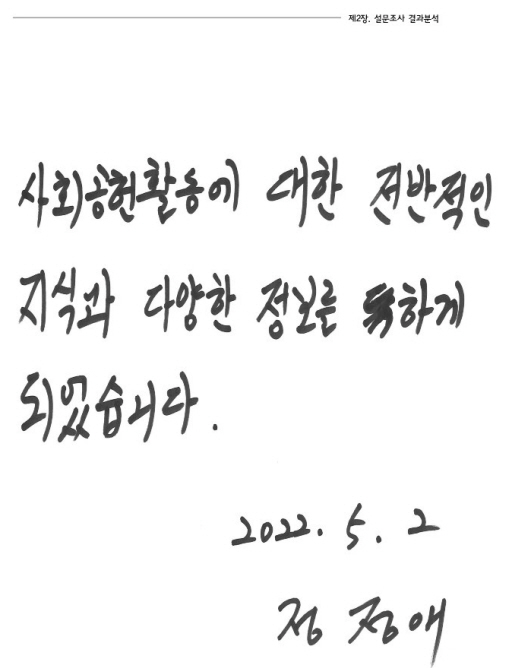 제2장. 설문조사 결과분석
사회공헌활동에 대한 전반적인
지식과 다양한 정보를
되었습니다.
2022. 5. 2
정 정애